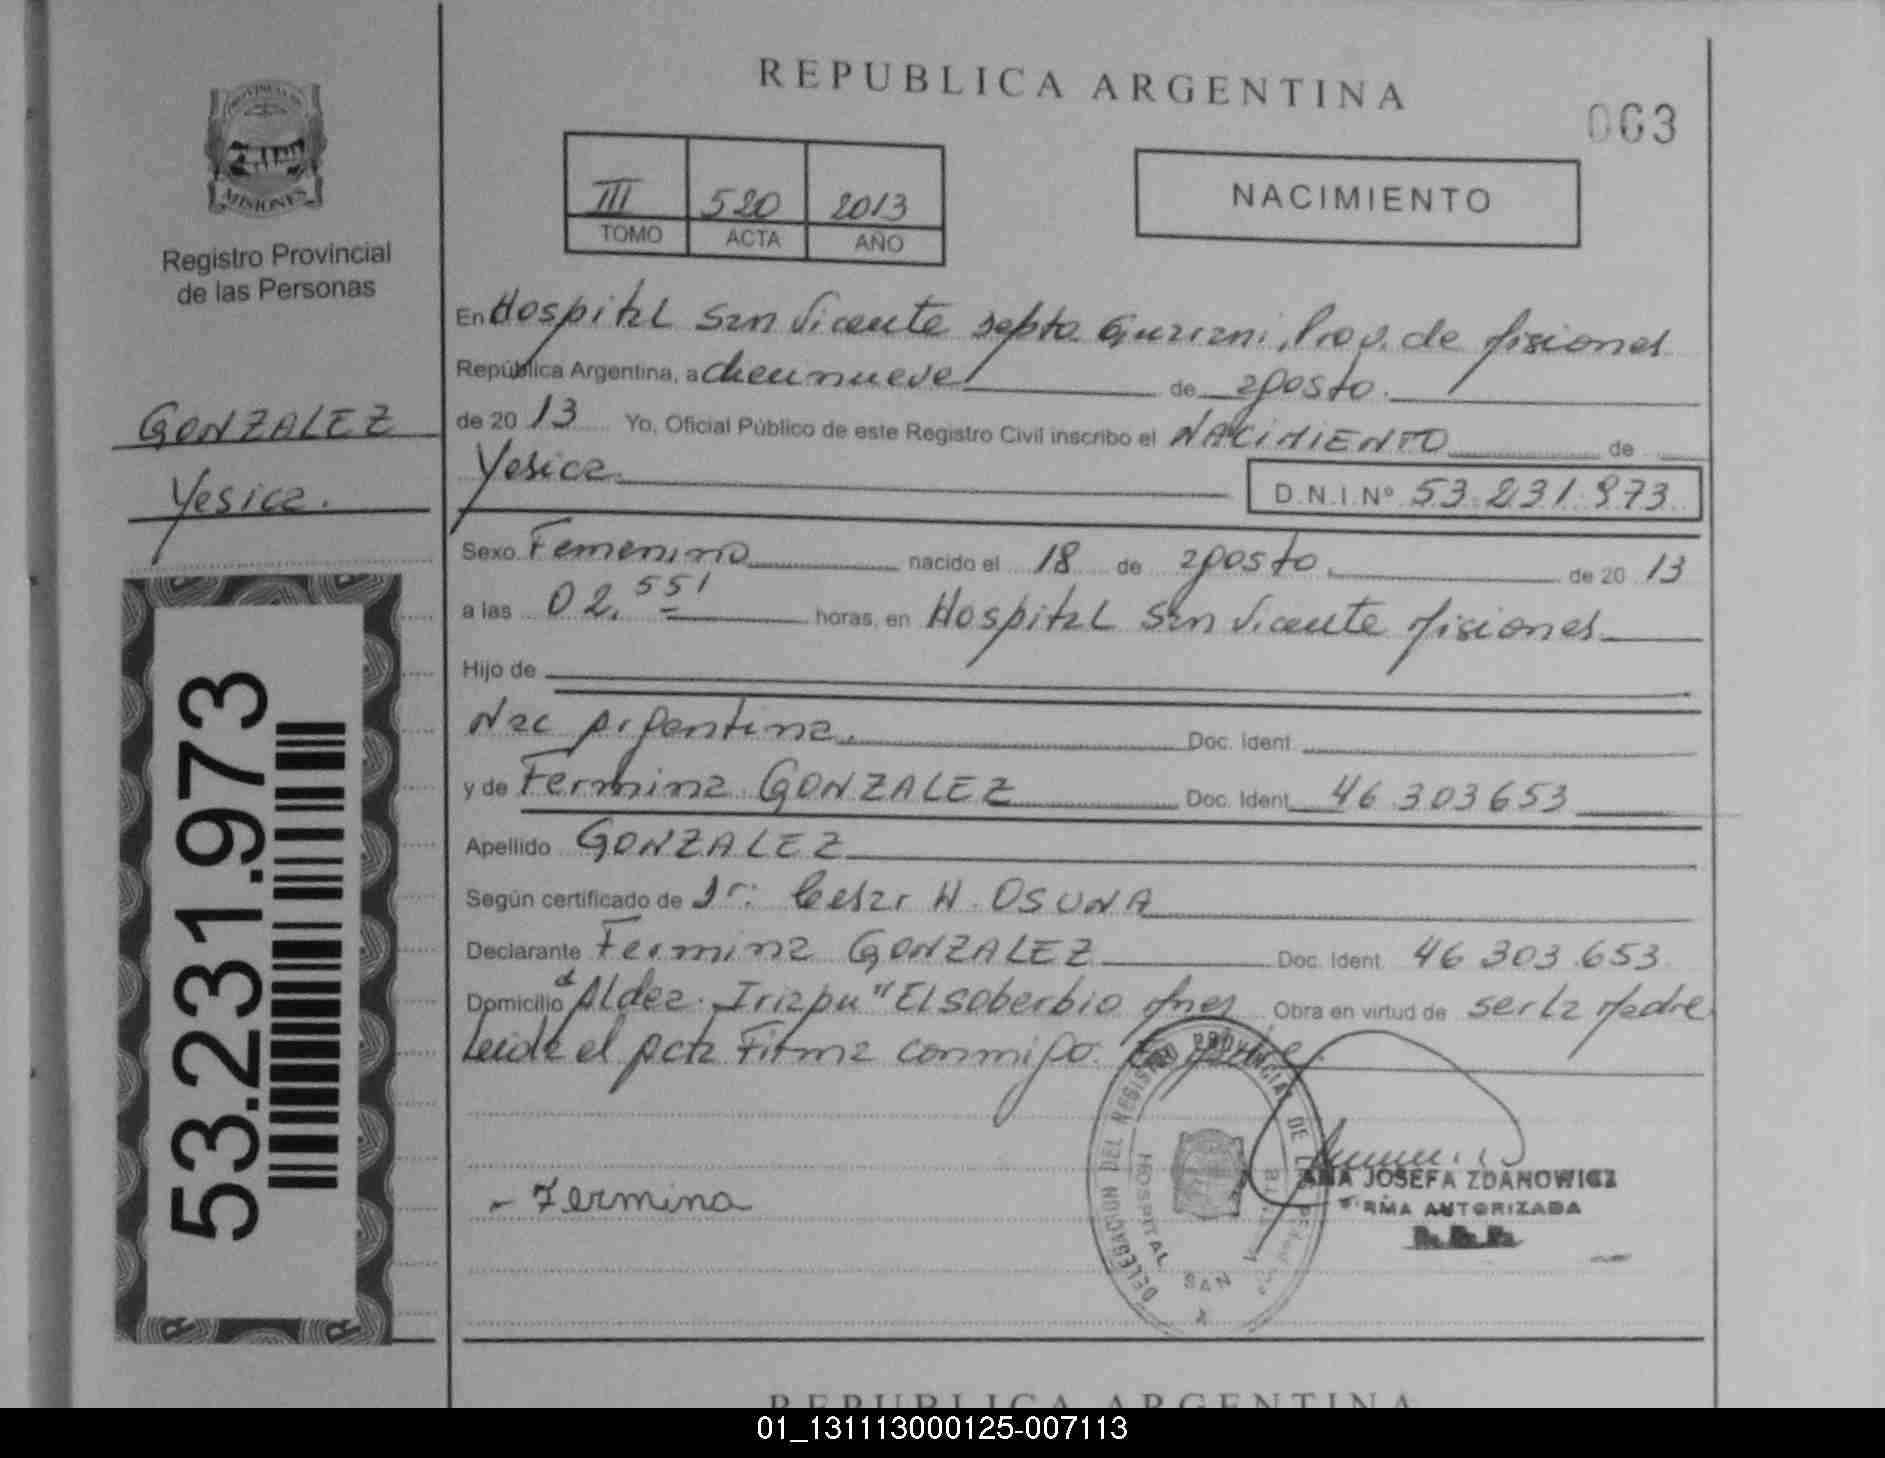 REPUBLICA ARGENTINA
063
PROVINCIA DE
MISIONES
Registro Provincial
de las Personas
III 520 2013
TOMO ACTA AÑO
NACIMIENTO
GONZALEZ
Yesica.
53.231.973
En Hospital San Vicente Depto Guarani, Prov. de Misiones
República Argentina, a diecinueve de agosto.
de 2013 Yo, Oficial Público de este Registro Civil inscribo el NACIMIENTO de
Yesica. D.N.I.Nº 53.231.973
Sexo Femenino nacido el 18 de agosto. de 2013
a las 02.55' horas, en Hospital San Vicente Misiones
Hijo de
Nac Argentina. Doc. Ident.
y de Fermina GONZALEZ Doc. Ident. 46.303653
Apellido GONZALEZ
Según certificado de Dr: Cesar H. OSUNA
Declarante Fermina GONZALEZ Doc. Ident. 46 303.653
Domicilio Aldea Iriapu "El soberbio Mnes Obra en virtud de ser la Madre
Leida el Acta Firma conmigo.
DELEGACION DEL REGISTRO PROVINCIAL DE
HOSPITAL SAN
- Fermina
ANA JOSEFA ZDANOWICZ
FIRMA AUTORIZADA
REPUBLICA ARGENTINA
01_131113000125-007113